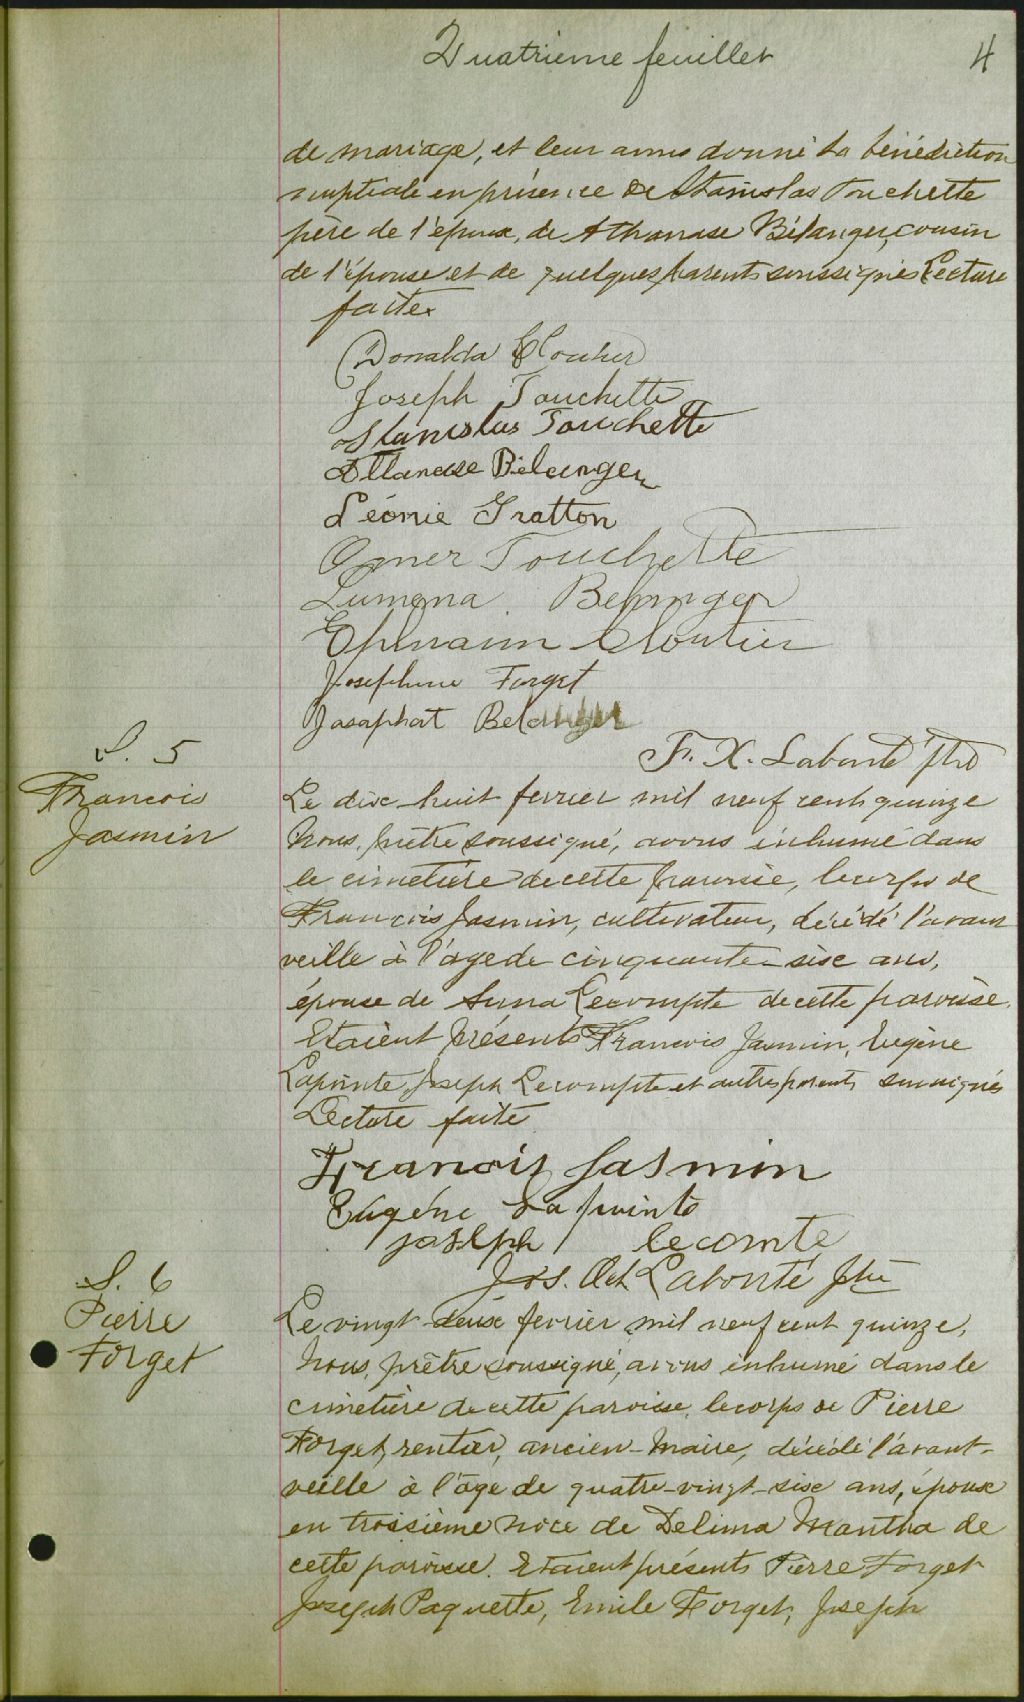 Quatrième feuillet 4
de mariage, et leur avons donné la bénédiction
nuptiale en présence de Stanislas Touchette
père de l'époux, de Athanase Bélanger, cousin
de l'épouse et de quelques parents soussignés Lecture
faite.
Donalda Cloutier
Joseph Touchette
Stanislas Touchette
Attanase Bélanger
Léonie Gratton
Omer Touchette
Lumena Belanger
Ephraim Cloutier
Josephine Forget
Josaphat Belanger
F. X. Labonté ptre
S. 5
François
Jasmin
Le dix-huit fevrier mil neuf cent quinze
Nous, prêtre soussigné, avons inhumé dans
le cimetière de cette paroisse, le corps de
François Jasmin, cultivateur, décédé l'avant
veille à l'age de cinquante-six ans,
épouse de Lecompte de cette paroisse.
Etaient présents François Jasmin, Eugène
Lapointe, Joseph Lecompte et autres parents soussignés
Lecture faite
Francois Jasmin
Eugène Lapointe
joseph lecomte
Jos. Oct. Labonté ptre
S. 6
Pierre
Forget
Le vingt-deux fevrier mil neuf cent quinze,
Nous, prêtre soussigné, avons inhumé dans le
cimetière de cette paroisse, le corps de Pierre
Forget, rentier, ancien-Maire, décédé l'avant-
veille à l'âge de quatre-vingt-six ans, époux
en troissième noce de Delima Mantha de
cette paroisse. Etaient présents Pierre Forget
Joseph Paquette, Emile Forget, Joseph